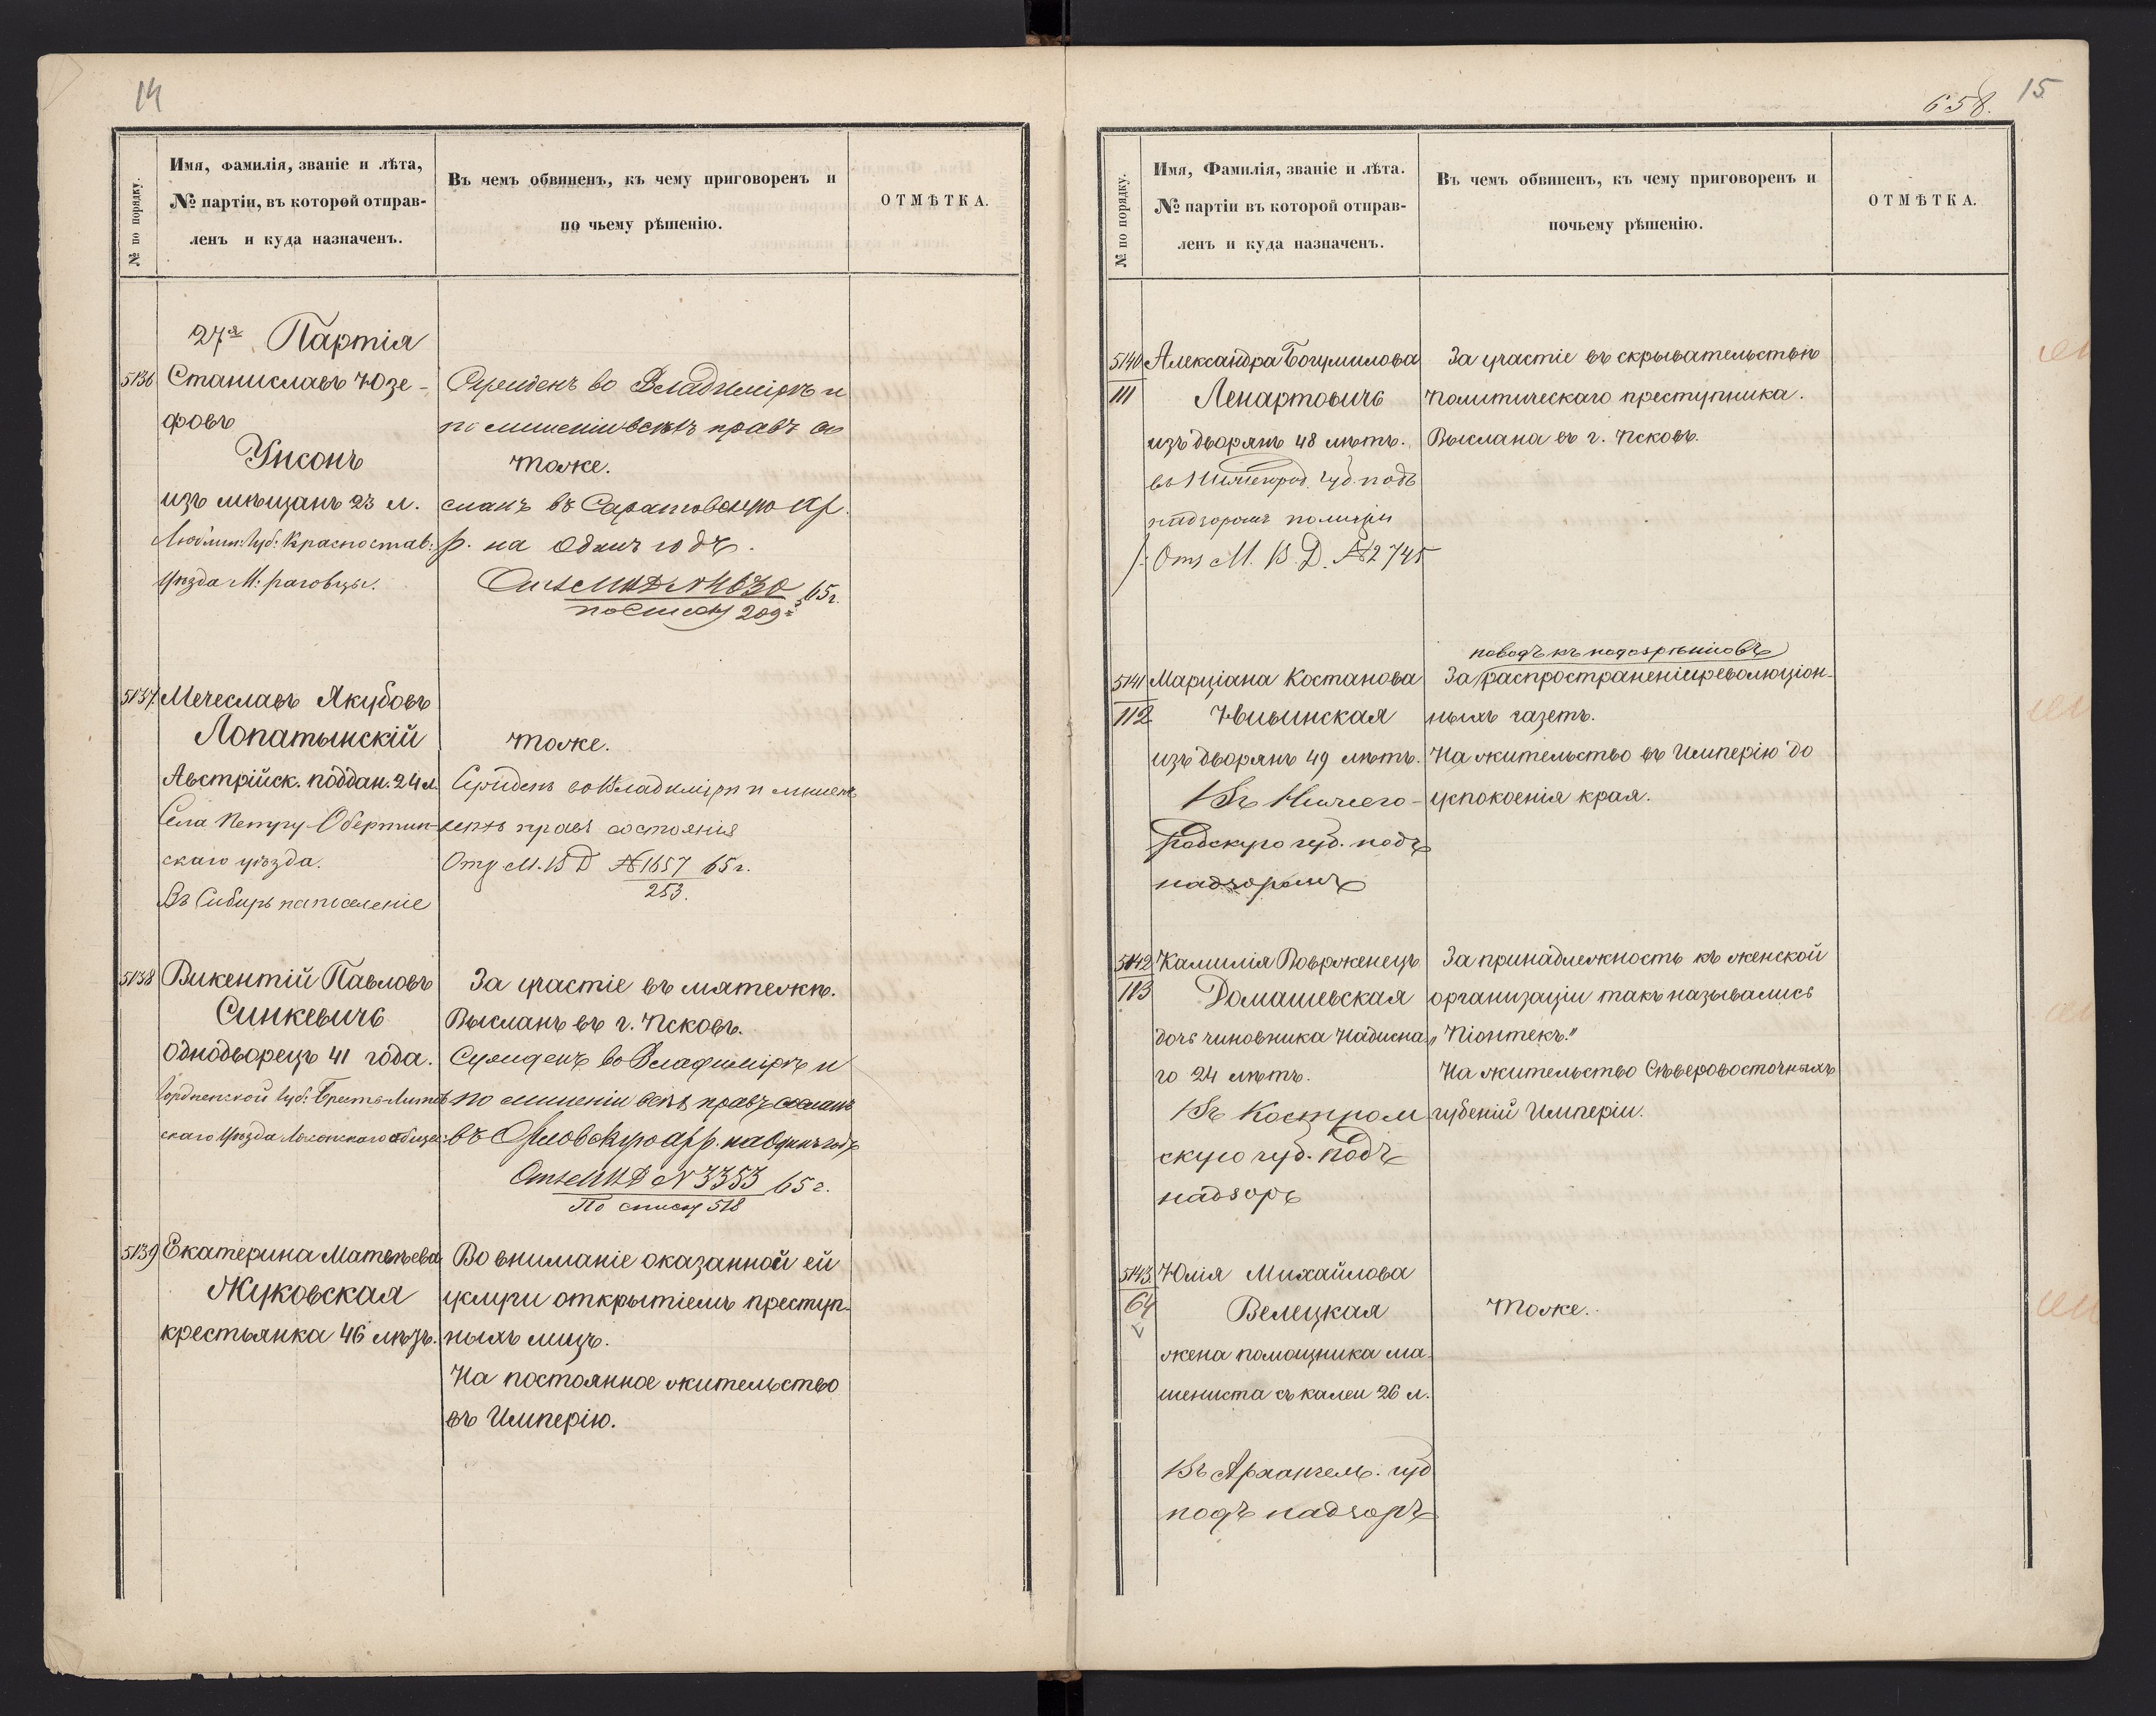 14
№ по порядку.
Имя, фамилія, званіе и лѣта,
№ партіи, въ которой отправ-
ленъ и куда назначенъ.
Въ чемъ обвиненъ, къ чему приговоренъ и
по чьему рѣшенію.
ОТМѢТКА.
27я Партія
5136 Станиславъ Юзе-
фовъ
Унсонъ
изъ мѣщанъ 23 л.
Люблин: Губ: Красностав:
уѣзда М:
Сужденъ во Владимірѣ и
по лишеніи всѣхъ правъ со
тоже.
сланъ въ Саратовскую ар.
р. на одинъ годъ.
Отъ МВД № 4630 65 г.
по списку 209
5137 Мечеславъ Якубовъ
Лопатынскій
Австрійск. поддан. 24 л.
Села Петру Обертин-
скаго уѣзда.
Въ Сибирь на поселеніе
тоже.
Сужденъ во Владимірѣ и лишенъ
всѣхъ правъ состоянія
Отъ М. В Д № 1657 65 г.
253.
5138 Викентій Павловъ
Синкевичъ
однодворецъ 41 года.
Гродненской Губ: Брестъ Литов
скаго Уѣзда
За участіе въ мятежѣ.
Высланъ въ г. Псковъ.
Сужденъ во Владимірѣ и
по лишеніи всѣхъ правъ сосланъ
въ Орловскую ар р. на одинъ годъ
Отъ МВД № 3353 65 г.
По списку 518
5139 Екатерина Матвѣева
Жуковская
крестьянка 46 лѣтъ.
Во вниманіе оказанной ей
услуги открытіемъ преступ-
ныхъ лицъ.
На постоянное жительство
въ Имперію.
658.
15
№ по порядку.
Имя, Фамилія, званіе и лѣта.
№ партіи въ которой отправ-
ленъ и куда назначенъ.
Въ чемъ обвиненъ, къ чему приговоренъ и
почьему рѣшенію.
ОТМѢТКА.
5140 Александра Богумилова
111 Ленартовичъ
изъ дворянъ 48 лѣтъ.
въ Нижегород. губ. подъ
надзоромъ полиціи
Отъ М. В. Д. № 2745
За участіе въ скрывательствѣ
политическаго преступника.
Выслана въ г. Псковъ.
5141 Марціана Костанова
112
изъ дворянъ 49 лѣтъ.
Въ Нижего-
родскую губ. подъ
надзоромъ
поводъ къ подозрѣнію въ
За распространеніи революціон-
ныхъ газетъ.
На жительство въ Имперію до
успокоенія края.
5142 Камилія Воврженецъ
113 Домашевская
дочь чиновника Надисна-
го 24 лѣтъ.
Въ Костром
скую губ. подъ
надзоръ
За принадлежность къ женской
организаціи такъ назывались
„Піонтекъ."
На жительство Сѣверовосточныхъ
губеній Имперіи.
5143 Юлія Михайлова
64 Велецкая
жена помощника ма-
шениста съ калеи 26 л.
Въ Архангель. губ
подъ надзоръ
тоже.